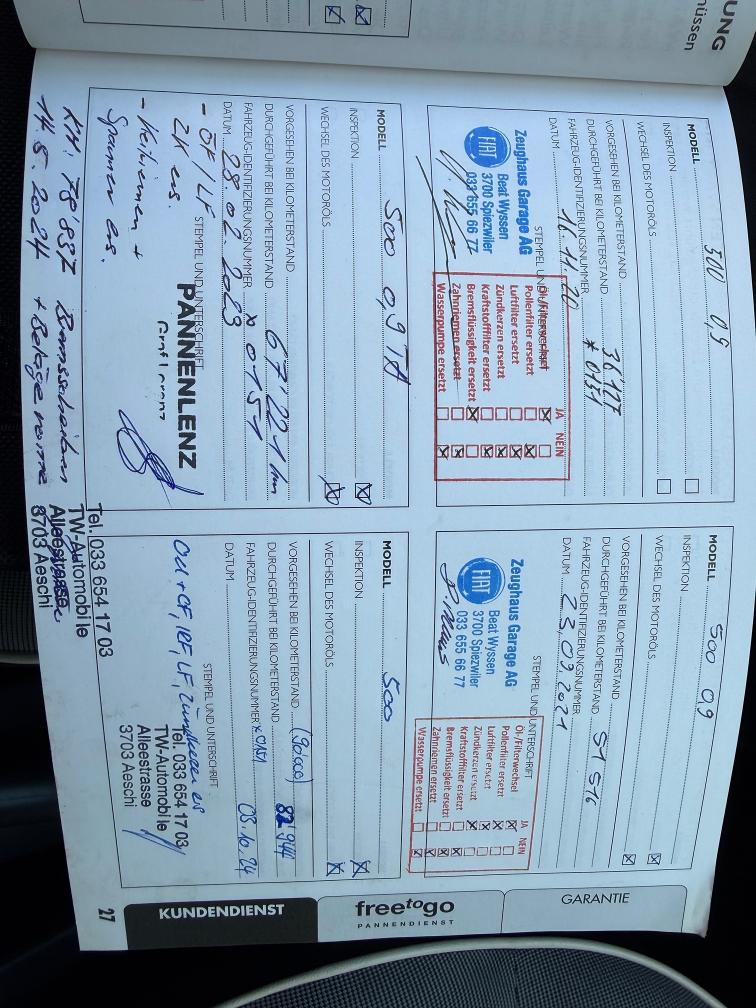 UNG
müssen
MODELL 500 0,9
INSPEKTION
WECHSEL DES MOTORÖLS
VORGESEHEN BEI KILOMETERSTAND
DURCHGEFÜHRT BEI KILOMETERSTAND 36'127
FAHRZEUG-IDENTIFIZIERUNGSNUMMER * 0151
DATUM 16.11.20
STEMPEL UND UNTERSCHRIFT
Zeughaus Garage AG
Beat Wyssen
3700 Spiezwiler
033 655 66 77
FIAT
JA NEIN
Öl-/Filterwechsel
Pollenfilter ersetzt
Luftfilter ersetzt
Zündkerzen ersetzt
Kraftstofffilter ersetzt
Bremsflüssigkeit ersetzt
Zahnriemen ersetzt
Wasserpumpe ersetzt
MODELL 500 0,9
INSPEKTION
WECHSEL DES MOTORÖLS
VORGESEHEN BEI KILOMETERSTAND
DURCHGEFÜHRT BEI KILOMETERSTAND 51 516
FAHRZEUG-IDENTIFIZIERUNGSNUMMER
DATUM 23.09.2021
STEMPEL UND UNTERSCHRIFT
Zeughaus Garage AG
Beat Wyssen
3700 Spiezwiler
033 655 66 77
FIAT
JA NEIN
Öl-/Filterwechsel
Pollenfilter ersetzt
Luftfilter ersetzt
Zündkerzen ersetzt
Kraftstofffilter ersetzt
Bremsflüssigkeit ersetzt
Zahnriemen ersetzt
Wasserpumpe ersetzt
MODELL 500 0,9 TA
INSPEKTION
WECHSEL DES MOTORÖLS
VORGESEHEN BEI KILOMETERSTAND
DURCHGEFÜHRT BEI KILOMETERSTAND 67'221 km
FAHRZEUG-IDENTIFIZIERUNGSNUMMER * 0151
DATUM 28.02.2023
STEMPEL UND UNTERSCHRIFT
- ÖF/LF
ZK ers.
- Keilriemen +
Spanner ers.
PANNENLENZ
KM. 78'837 Bremsscheiben
14.5.2024 + Beläge vorne
Tel. 033 654 17 03
TW-Automobile
Alleestrasse
3703 Aeschi
MODELL 500
INSPEKTION
WECHSEL DES MOTORÖLS
VORGESEHEN BEI KILOMETERSTAND (90'000)
DURCHGEFÜHRT BEI KILOMETERSTAND 82'944
FAHRZEUG-IDENTIFIZIERUNGSNUMMER * 0151
DATUM 03.10.24
STEMPEL UND UNTERSCHRIFT
LF, Zündkerzen ers
Tel. 033 654 17 03
TW-Automobile
Alleestrasse
3703 Aeschi
GARANTIE
freetogo
PANNENDIENST
KUNDENDIENST
27